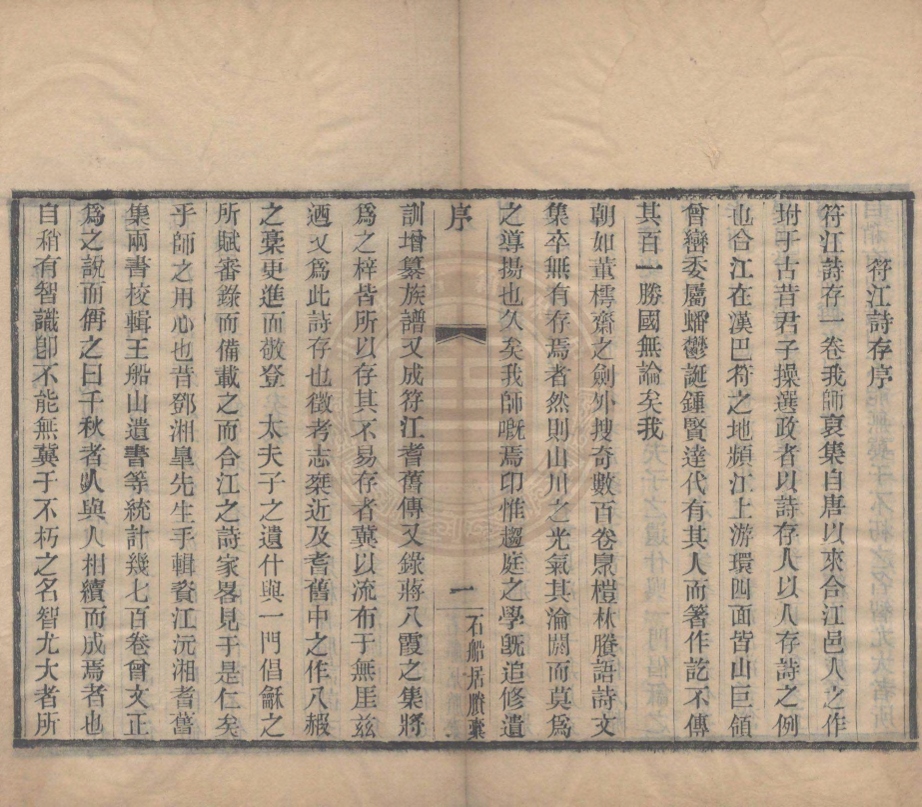 符江詩存序
符江詩存一卷我師裒集自唐以來合江邑人之作
坿于古昔君子操選政者以詩存人以人存詩之例
也合江在漢巴符之地頻江上游環四面皆山巨領
曾巒委屬蟠鬱誕鍾賢達代有其人而著作訖不傳
其百一勝國無論矣我
朝如董樗齋之劍外搜奇數百卷㮚榿林賸語詩文
集卒無有存焉者然則山川之光氣其淪閼而莫爲
之導揚也久矣我師嘅焉卬惟趨庭之學旣追修遺
序 一 石船居賸稾
訓增纂族譜又成符江耆舊傳又錄蔣八霞之集將
爲之梓皆所以存其不易存者冀以流布于無厓兹
迺又爲此詩存也徵考志椉近及耆舊中之作八叚
之稾更進而敬登 太夫子之遺什與一門倡龢之
所賦審錄而備載之而合江之詩家畧見于是仁矣
乎師之用心也昔鄧湘臯先生手輯資江沅湘耆舊
集兩書校輯王船山遺書等統計幾七百卷曾文正
爲之說而侢之曰千秋者㕥與人相續而成焉者也
自稍有智識卽不能無冀于不朽之名智尤大者所